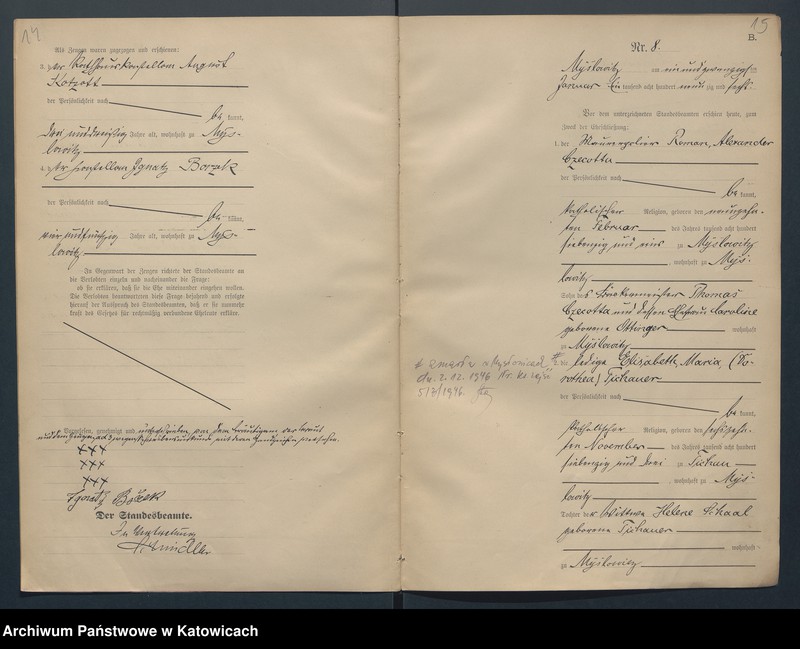 14
Als Zeugen waren zugezogen und erschienen:
3. der August
Kotzott
der Persönlichkeit nach
be kannt,
drei und dreißig Jahre alt, wohnhaft zu Mys-
lowitz
4. der Ignatz Borzek
der Persönlichkeit nach
be kannt,
vier und fünfzig Jahre alt, wohnhaft zu Mys-
lowitz
In Gegenwart der Zeugen richtete der Standesbeamte an
die Verlobten einzeln und nacheinander die Frage:
ob sie erklären, daß sie die Ehe miteinander eingehen wollen.
Die Verlobten beantworteten diese Frage bejahend und erfolgte
hierauf der Ausspruch des Standesbeamten, daß er sie nunmehr
kraft des Gesetzes für rechtmäßig verbundene Eheleute erkläre.
Vorgelesen, genehmigt und unterschrieben von dem Bräutigam der Braut
und dem Zeugen zu 3 wegen Schreibensunkunde mit deren Handzeichen versehen.
+++
+++
+++
Ignatz
Der Standesbeamte.
In Vertretung
15
B.
Nr. 8.
Myslowitz am ein und zwanzigsten
Januar tausend acht hundert neun zig und sechs
Vor dem unterzeichneten Standesbeamten erschien heute, zum
Zweck der Eheschließung:
1. der Maurerpolier Roman, Alexander
Czecotta
der Persönlichkeit nach
be kannt,
katholischer Religion, geboren den neunzehn-
ten Februar des Jahres tausend acht hundert
siebenzig und eins zu Myslowitz
wohnhaft zu Mys-
lowitz
Sohn des Bäckermeister Thomas
Czecotta und dessen Ehefrau Caroline
geborene Ottinger wohnhaft
zu Myslowitz
2. die ledige Elisabeth, Maria, (Do-
rothea) Tichauer
der Persönlichkeit nach
be kannt,
katholischer Religion, geboren den sechszehn-
ten November des Jahres tausend acht hundert
siebenzig und drei zu Tichau
wohnhaft zu Mys-
lowitz
Tochter der Wittwe Helene Schaal
geborene Tichauer
wohnhaft
zu Myslowitz
# zmarła w Mysłowicach
dn. 2.12.1946
517/1946.
Archiwum Państwowe w Katowicach